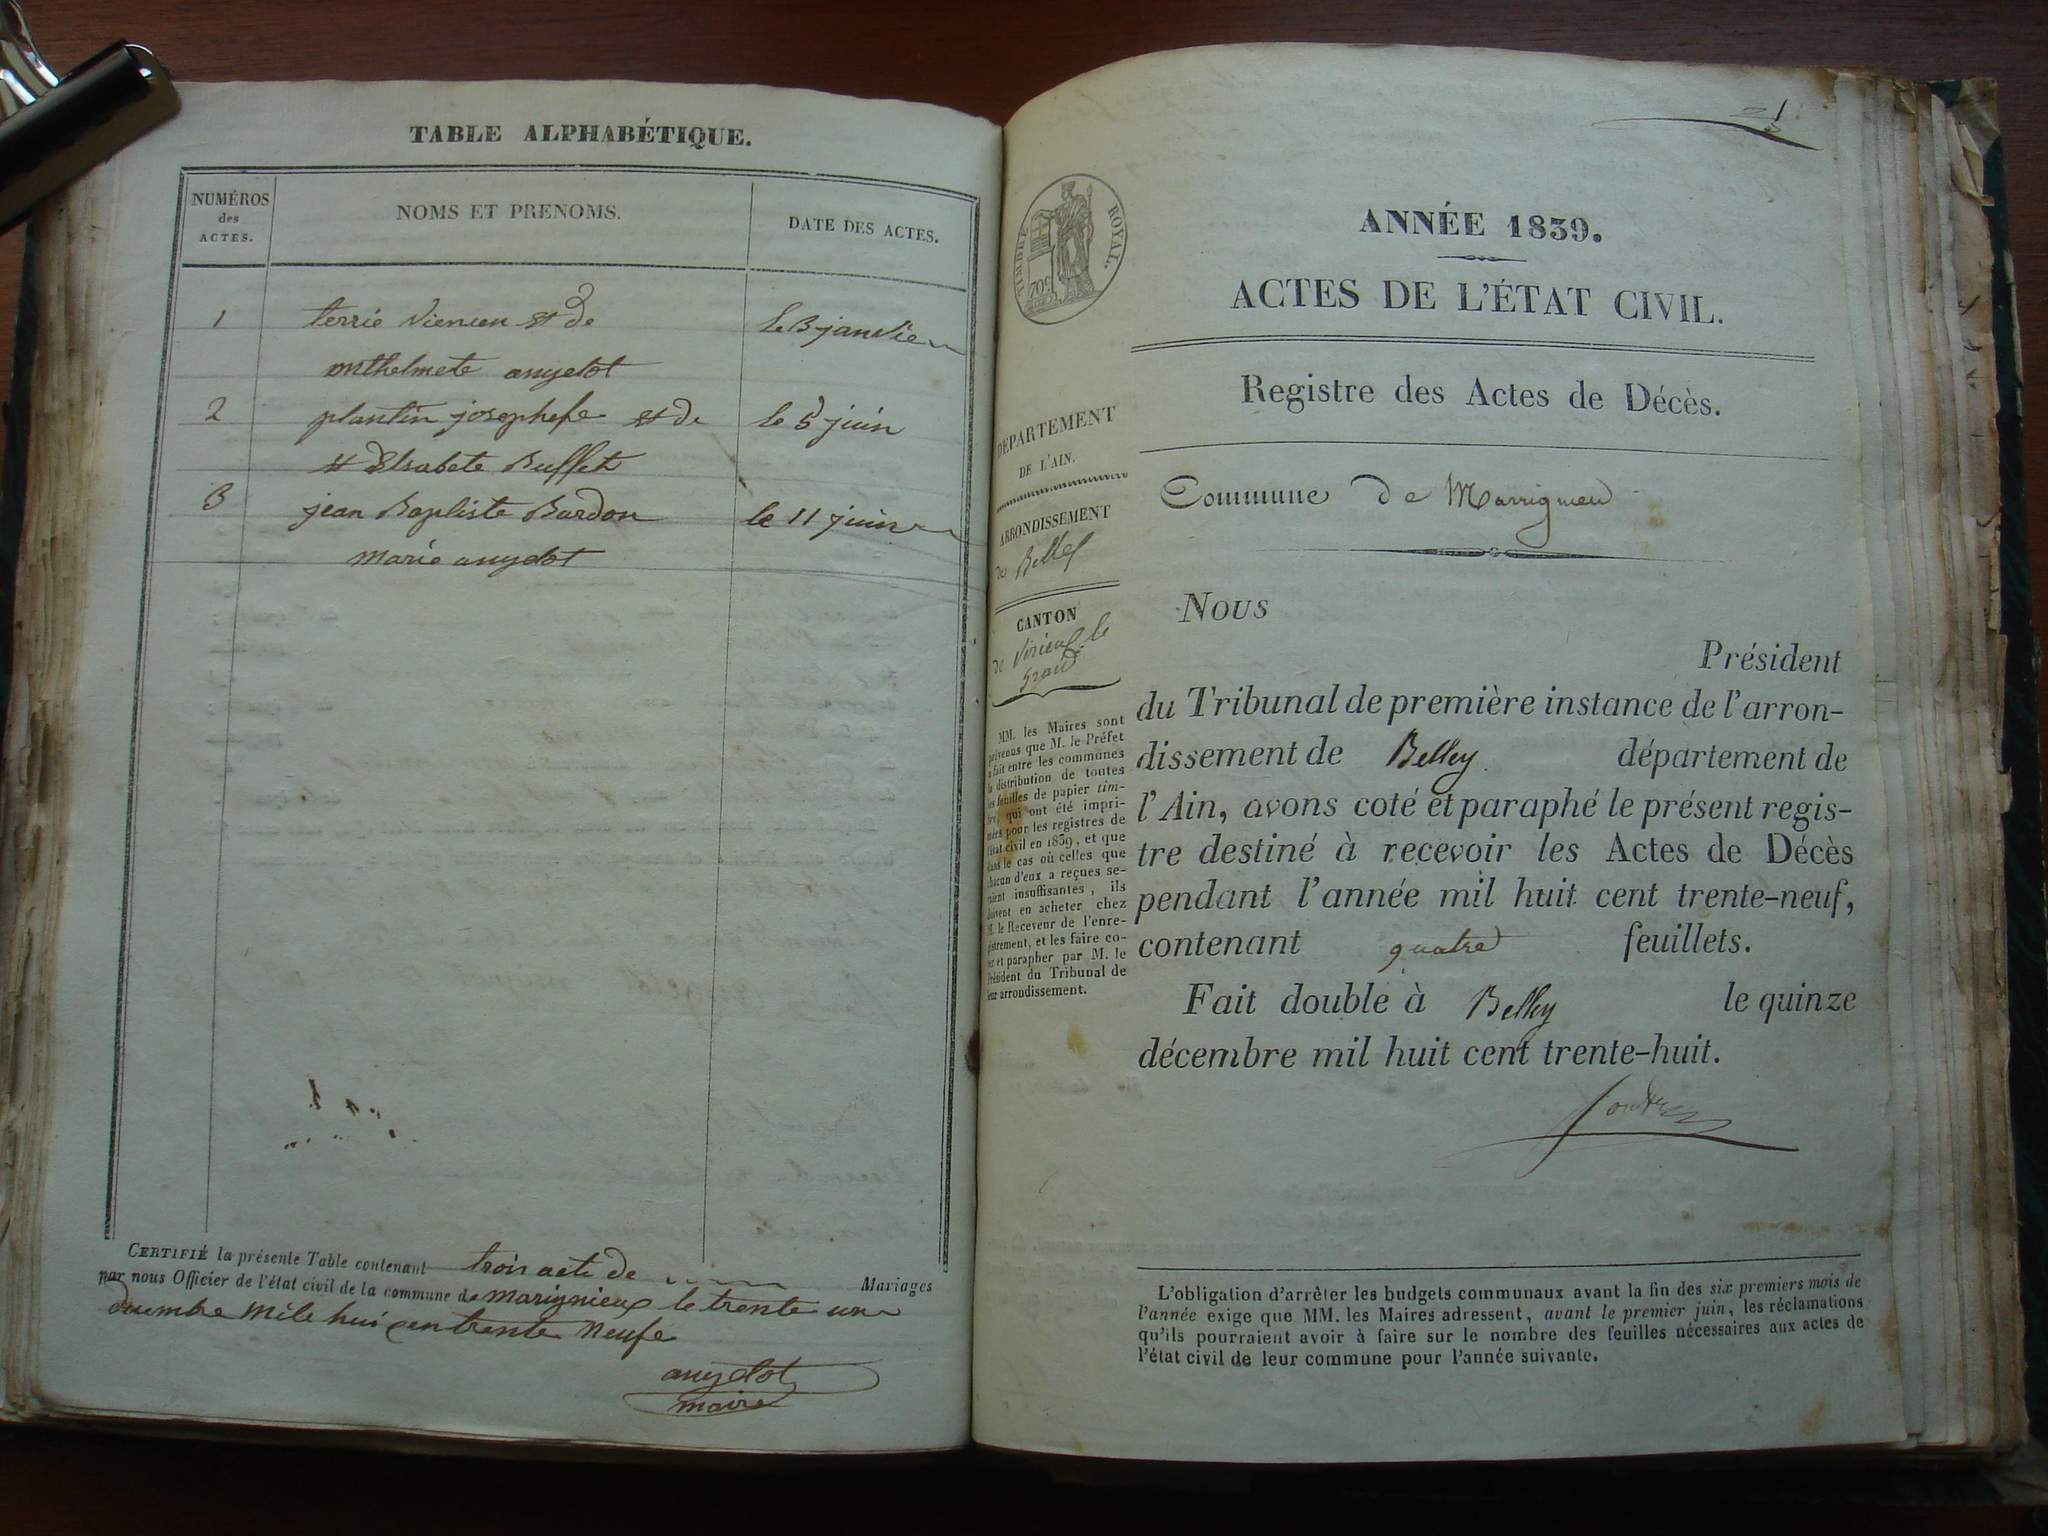 TABLE ALPHABÉTIQUE.
NUMÉROS
des
ACTES.
NOMS ET PRENOMS.
DATE DES ACTES.
1
de
le 3 janvie
angelot
2
plantin josephe et de
le 5 juin
Elsabete Buffet
3
jean Baptiste Burdon
le 11 juin
marie angelot
CERTIFIÉ la présente Table contenant trois acte de Mariages
par nous Officier de l'état civil de la commune de marignieux le trente un
decembre mile hui cen trente neufe
angelot
maire
TIMBRE ROYAL.
DÉPARTEMENT
DE L'AIN.
ARRONDISSEMENT
de Belley
CANTON
de Virieu le
grand
MM. les Maires sont
prévenus que M. le Préfet
a fait entre les communes
la distribution de toutes
les feuilles de papier tim-
bré, qui ont été impri-
mées pour les registres de
l'état civil en 1839, et que
dans le cas où celles que
chacun d'eux a reçues se-
raient insuffisantes, ils
doivent en acheter chez
M. le Receveur de l'enre-
gistrement, et les faire co-
ter et parapher par M. le
Président du Tribunal de
leur arrondissement.
ANNÉE 1839.
ACTES DE L'ÉTAT CIVIL.
Registre des Actes de Décès.
Commune de Marrignieu
Nous
Président
du Tribunal de première instance de l'arron-
dissement de Belley département de
l'Ain, avons coté et paraphé le présent regis-
tre destiné à recevoir les Actes de Décès
pendant l'année mil huit cent trente-neuf,
contenant quatre feuillets.
Fait double à Belley le quinze
décembre mil huit cent trente-huit.
L'obligation d'arrêter les budgets communaux avant la fin des six premiers mois de
l'année exige que MM. les Maires adressent, avant le premier juin, les réclamations
qu'ils pourraient avoir à faire sur le nombre des feuilles nécessaires aux actes de
l'état civil de leur commune pour l'année suivante.